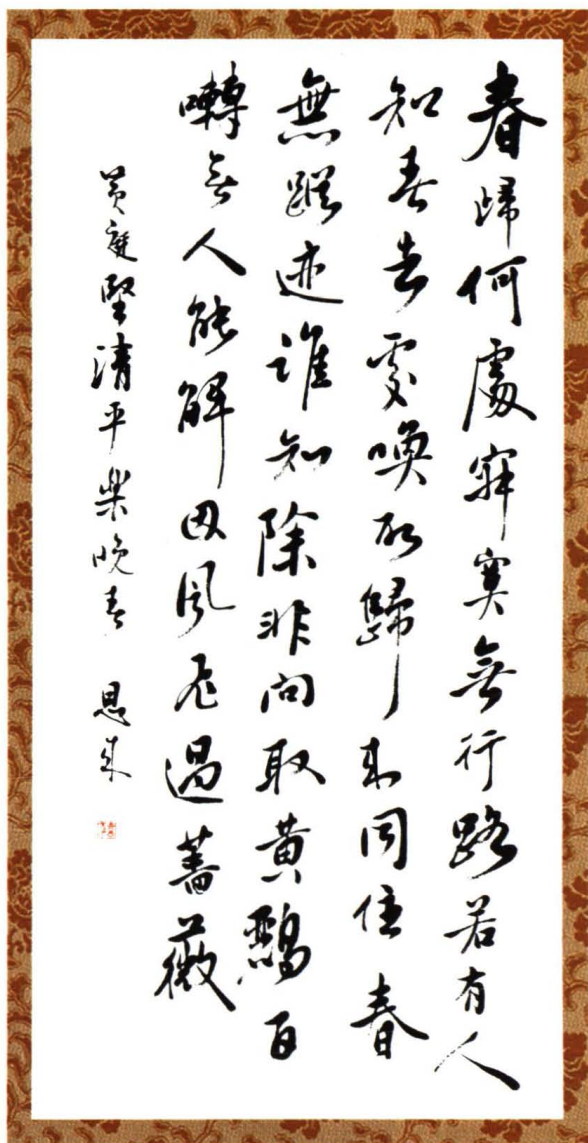 春歸何處寂寞無行路若有人
知春去處喚取歸來同住春
無蹤迹誰知除非問取黃鸝百
囀無人能解因風飛過薔薇
黃庭堅清平樂晚春 恩來